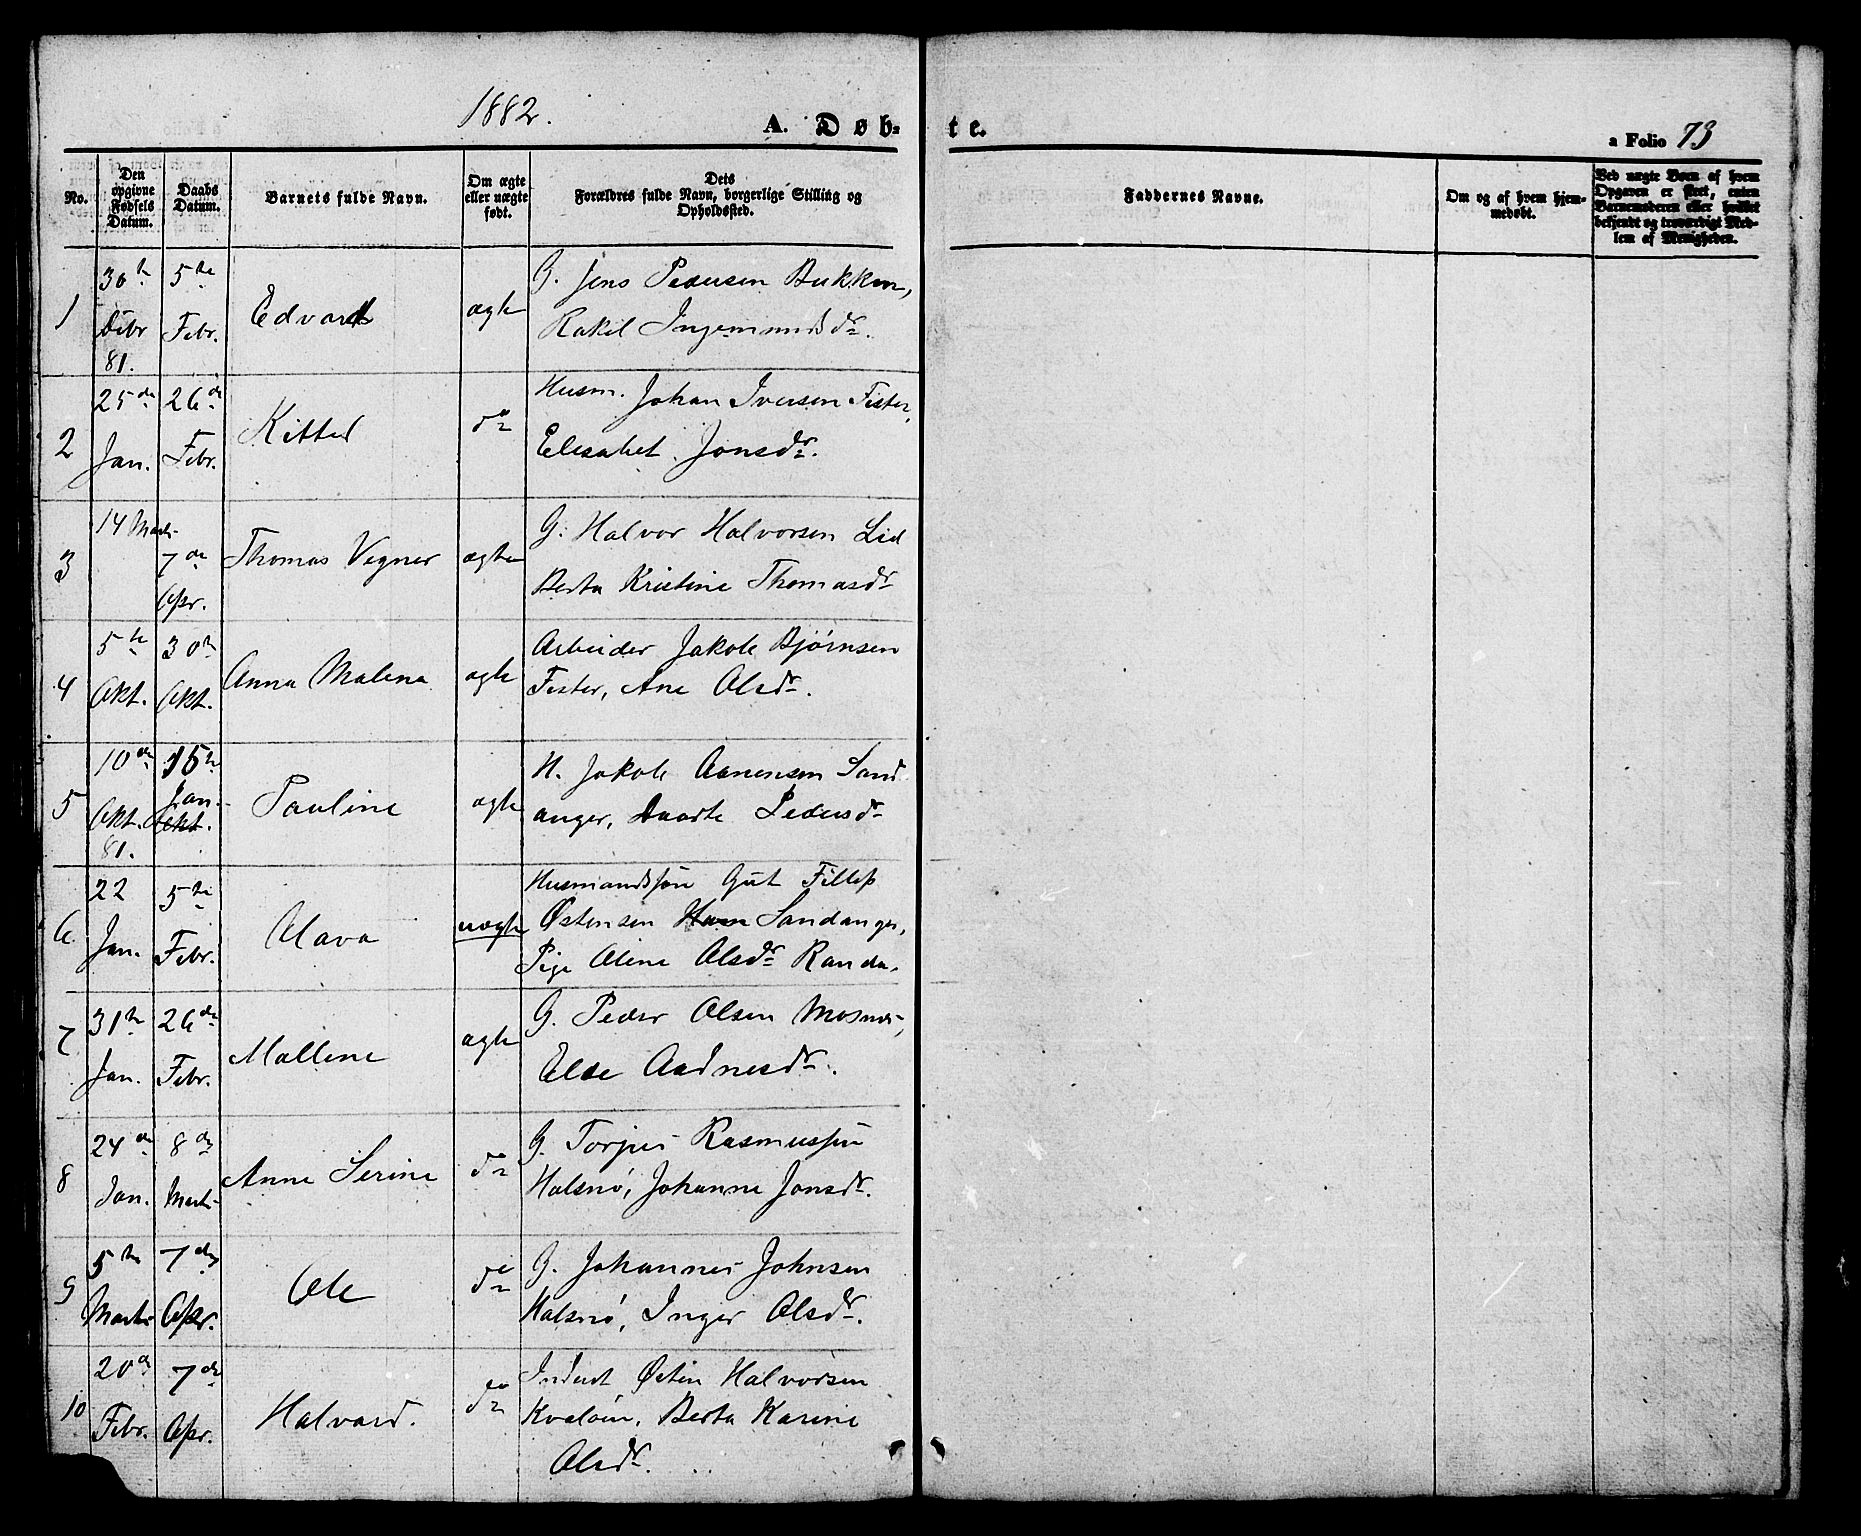 1882.
A. Døb-
te.
a Folio 73
No.
Den opgivne Fødsels Datum.
Daabs Datum.
Barnets fulde Navn.
Om ægte eller uægte født.
Dets Forældres fulde Navn, borgerlige Stilling og Opholdssted.
Faddernes Navne.
Om og af hvem hjemmedøbt.
Ved uægte Børn af hvem Opgaven er skeet, enten Barnemoderen eller hvilket bekjendt og troværdigt Medlem af Menigheden.
1 30te Debr 81. 5te Febr. Edvard ægte G. Jens Pedersen Bukken,
Rakel Ingemundsdr.
2 25de Jan. 26de Febr. Kittel do Husm. Johan Iversen Fister,
Elisabet Jonsdr.
3 14 Marts 7de Apr. Thomas Vegner ægte G. Halvor Halvorsen Lid
Berta Kristine Thomasdr
4 5te Okt. 30te Okt. Anna Malena ægte Arbeider Jakob Bjørnsen
Fister, Ane Olsdr.
5 10de Okt. 81. 15te Jan. Okt. Pauline ægte H. Jakob Aanensen Sand-
anger, Daarte Pedersdr
6 22 Jan. 5te Febr. Olava uægte Husmandssøn Gut Fillip
Østensen Sandanger,
Pige Oline Olsdr Randa.
7 31te Jan. 26de Febr. Mallene ægte G. Peder Olsen Mosnes,
Else Aadnesdr.
8 24de Jan. 8de Marts Anne Serine do G. Torjus Rasmussen
Halsnø, Johanne Jonsdr.
9 5te Marts 7de Apr. Ole do G. Johannes Johnsen
Halsnø, Inger Olsdr.
10 20de Febr. 7de Apr. Halvard. do Inderst Østen Halvorsen
Kvaløen, Berta Karine
Olsdr.